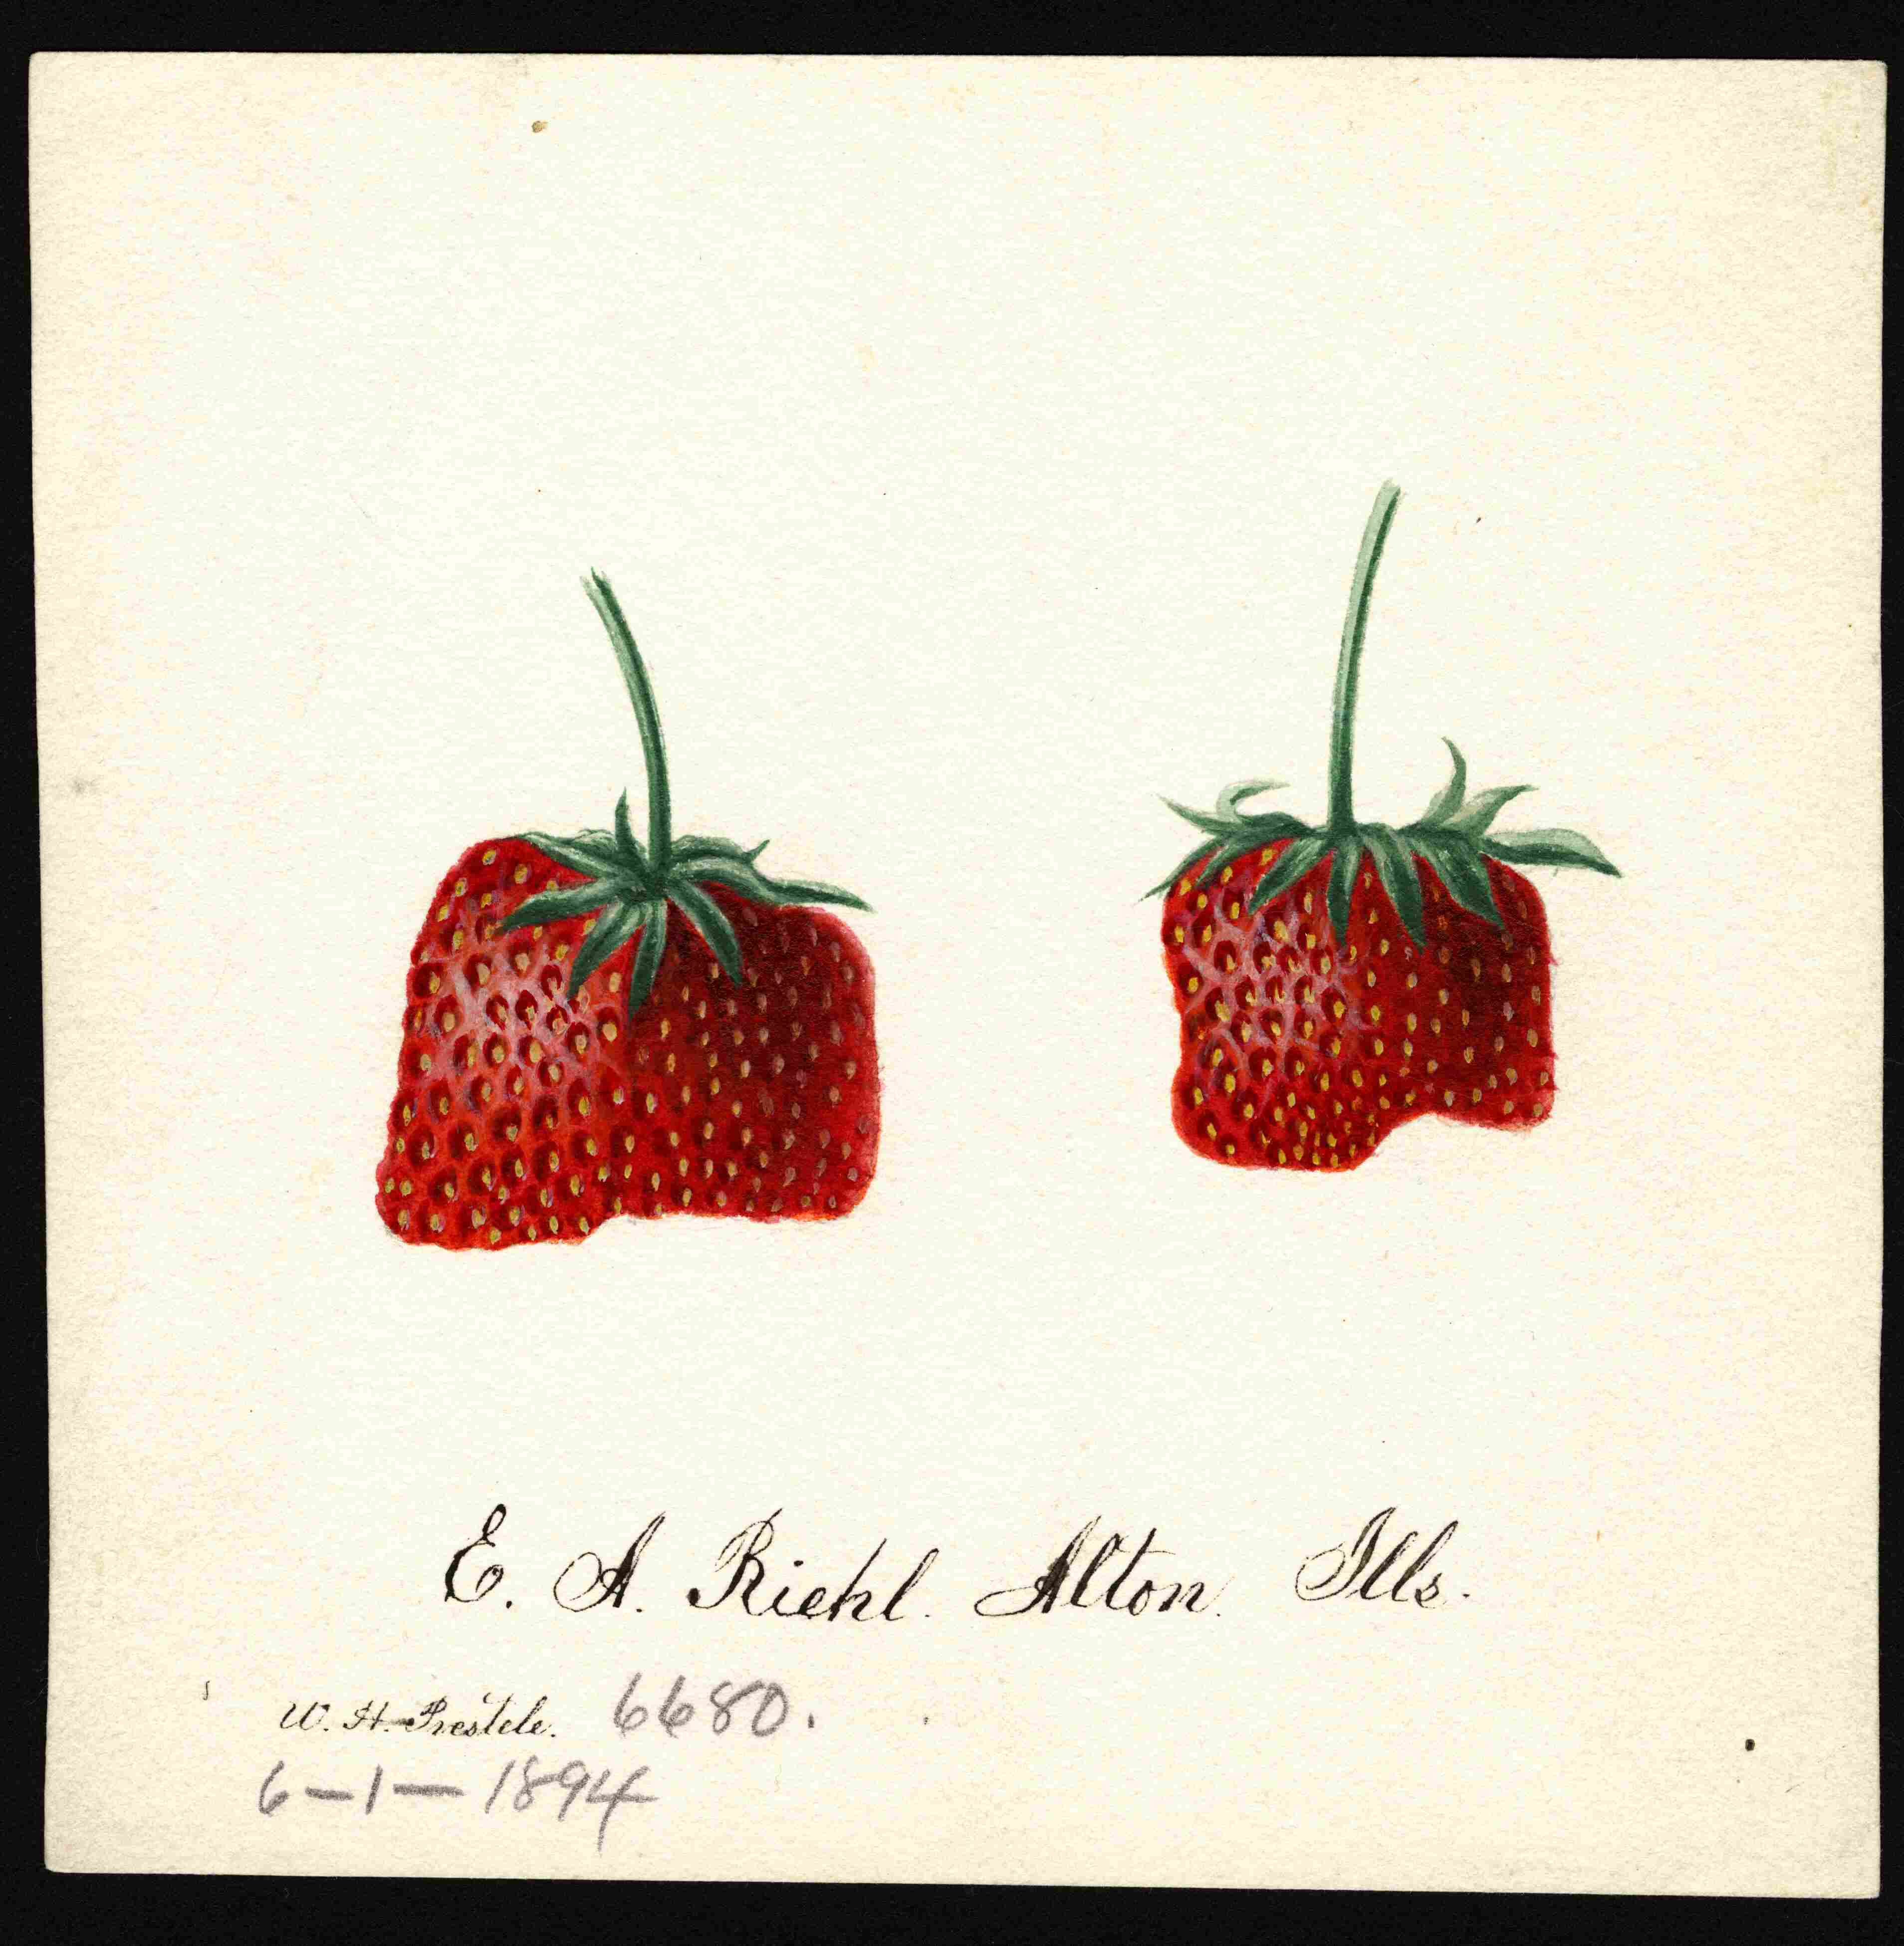 E. A. Riehl. Alton. Ills.
W. H. Prestele. 6680.
6-1-1894